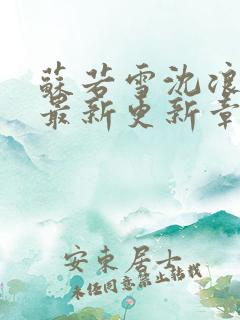 蘇若雪沈浪
最新更新章
安東居士
未經同意禁止轉載